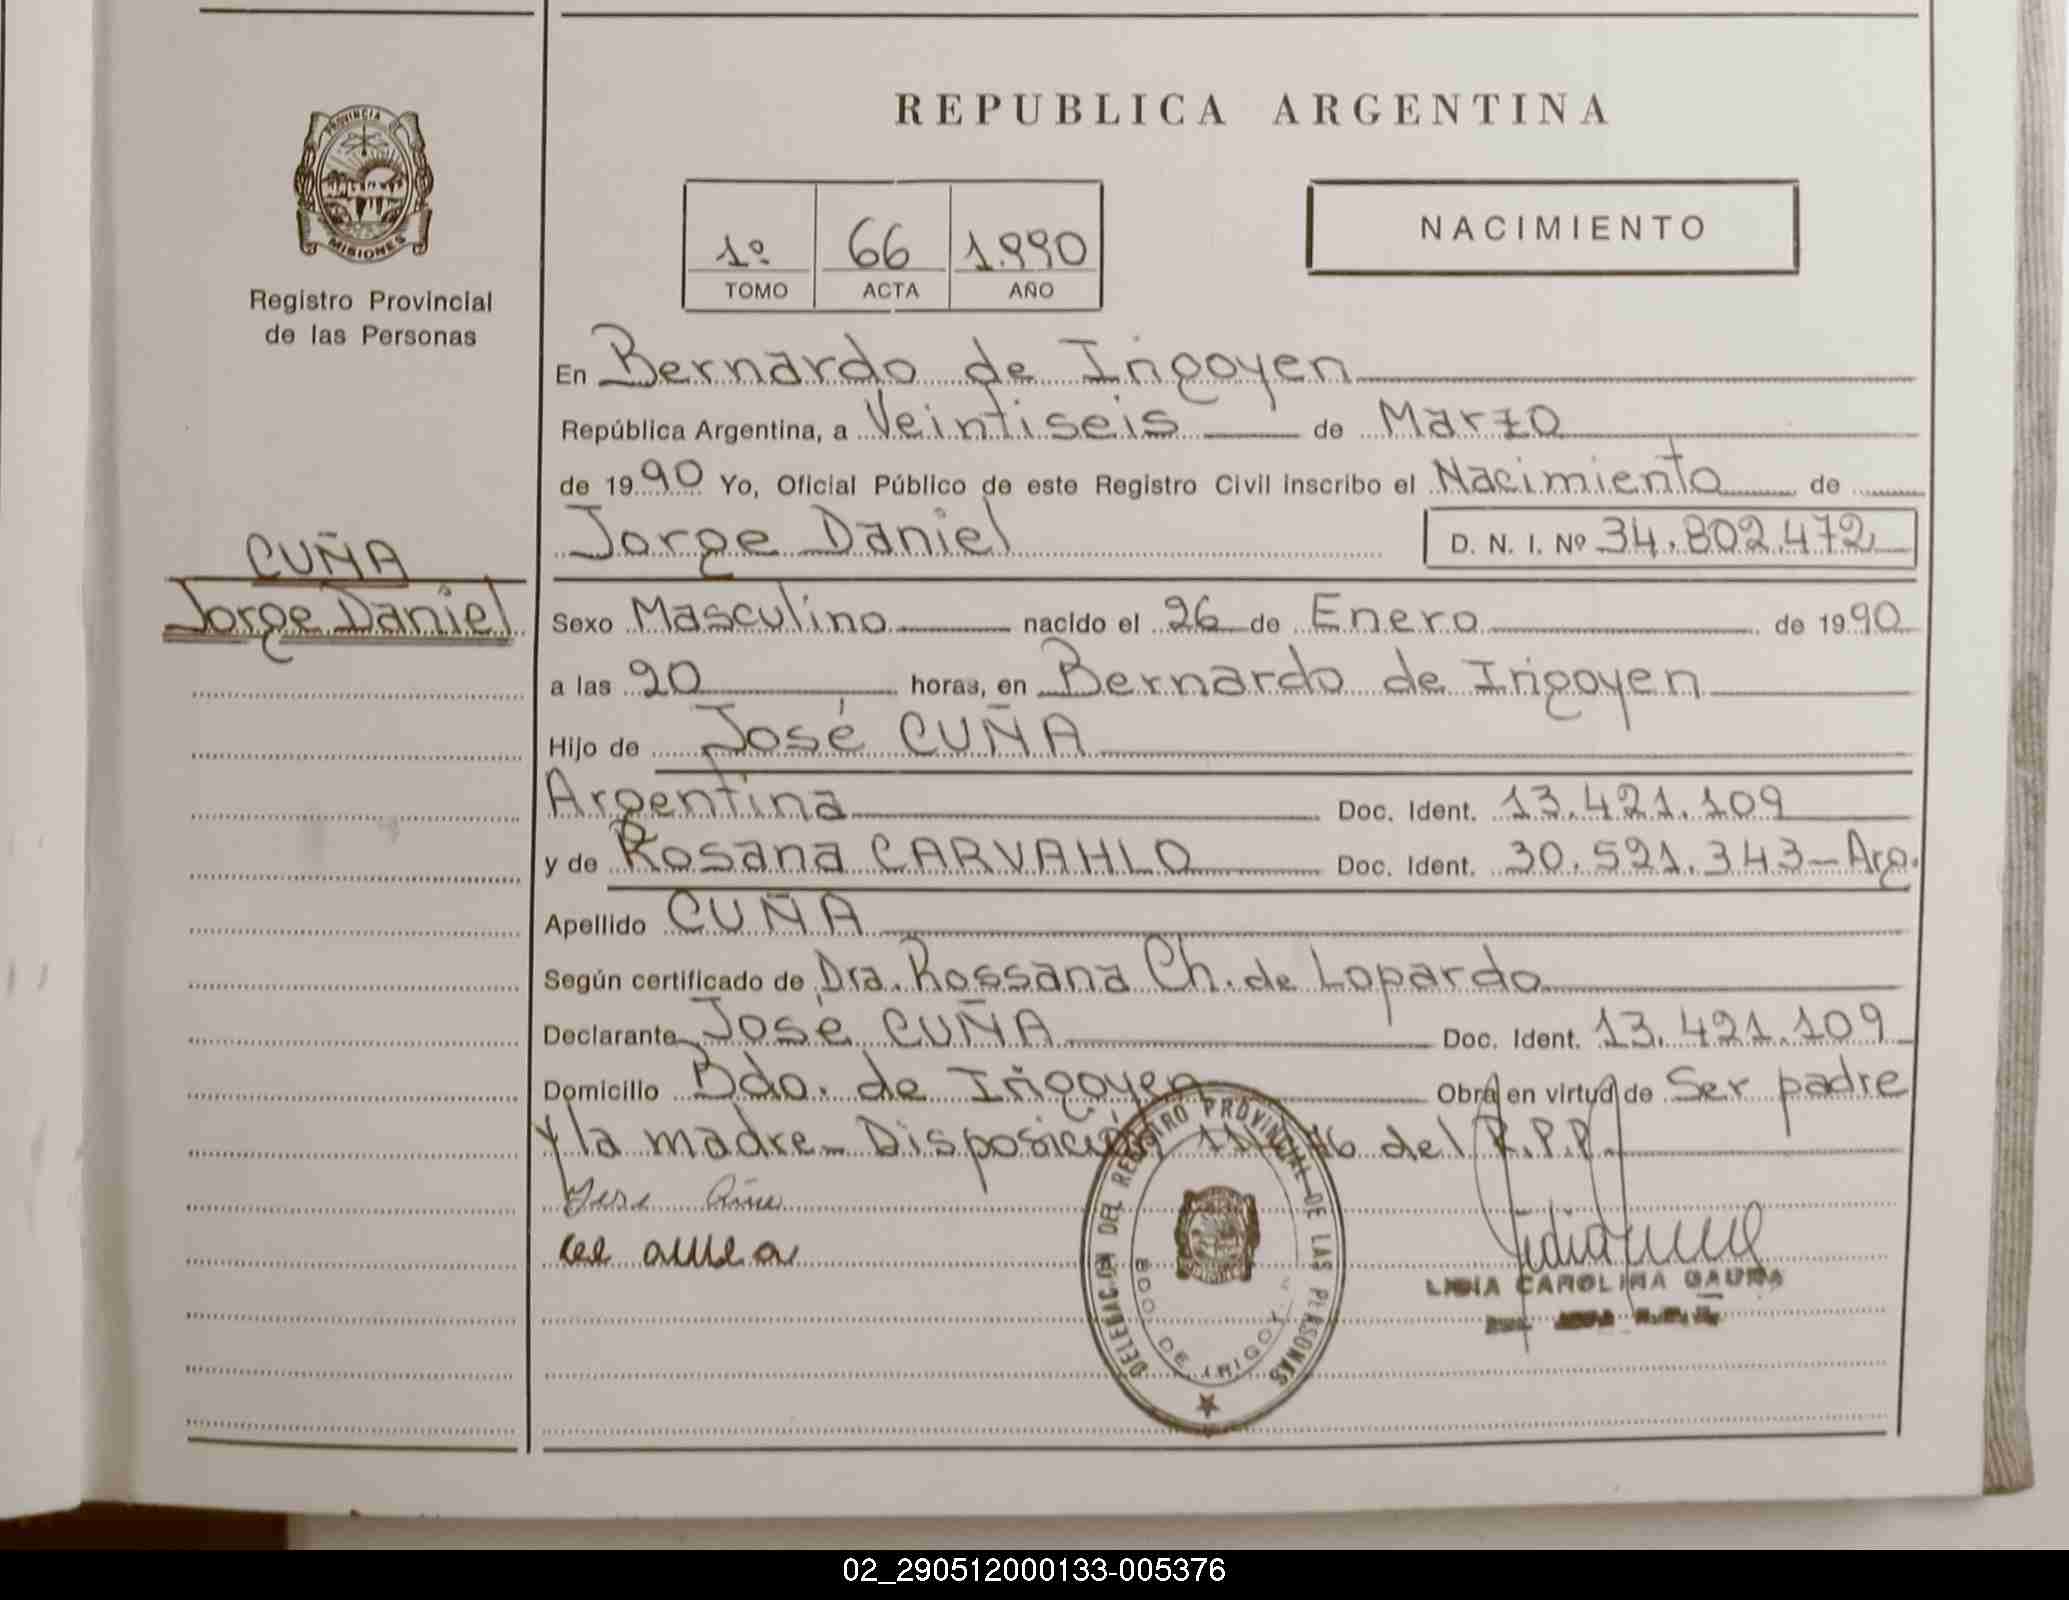 REPUBLICA ARGENTINA
PROVINCIA DE
MISIONES
Registro Provincial
de las Personas
1º 66 1.990
TOMO ACTA AÑO
NACIMIENTO
En Bernardo de Irigoyen
República Argentina, a Veintiseis de Marzo
de 1990 Yo, Oficial Público de este Registro Civil inscribo el Nacimiento de
Jorge Daniel D. N. I. Nº 34.802.472
CUÑA
Jorge Daniel
Sexo Masculino nacido el 26 de Enero de 1990
a las 20 horas, en Bernardo de Irigoyen
Hijo de José CUÑA
Argentina Doc. Ident. 13.421.109
y de Rosana CARVAHLO Doc. Ident. 30.521.343-Arg.
Apellido CUÑA
Según certificado de Dra. Rossana Ch. de Lopardo
Declarante José CUÑA Doc. Ident. 13.421.109
Domicilio Bdo. de Irigoyen Obra en virtud de Ser padre
y la madre- Disposición del R.P.P.
DELEGACION DEL REGISTRO PROVINCIAL DE LAS PERSONAS
BDO. DE IRIGOY
LIDIA CAROLINA
02_290512000133-005376